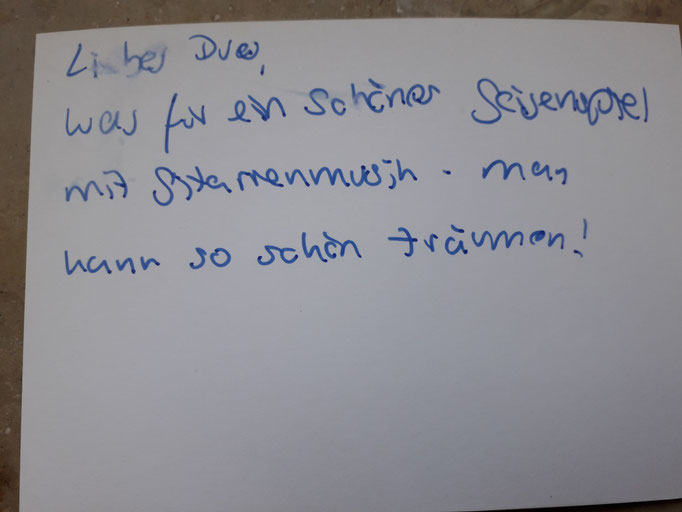 Liebes Duo,
was für ein schönes Geigenspiel
mit Gitarrenmusik - man
kann so schön träumen!